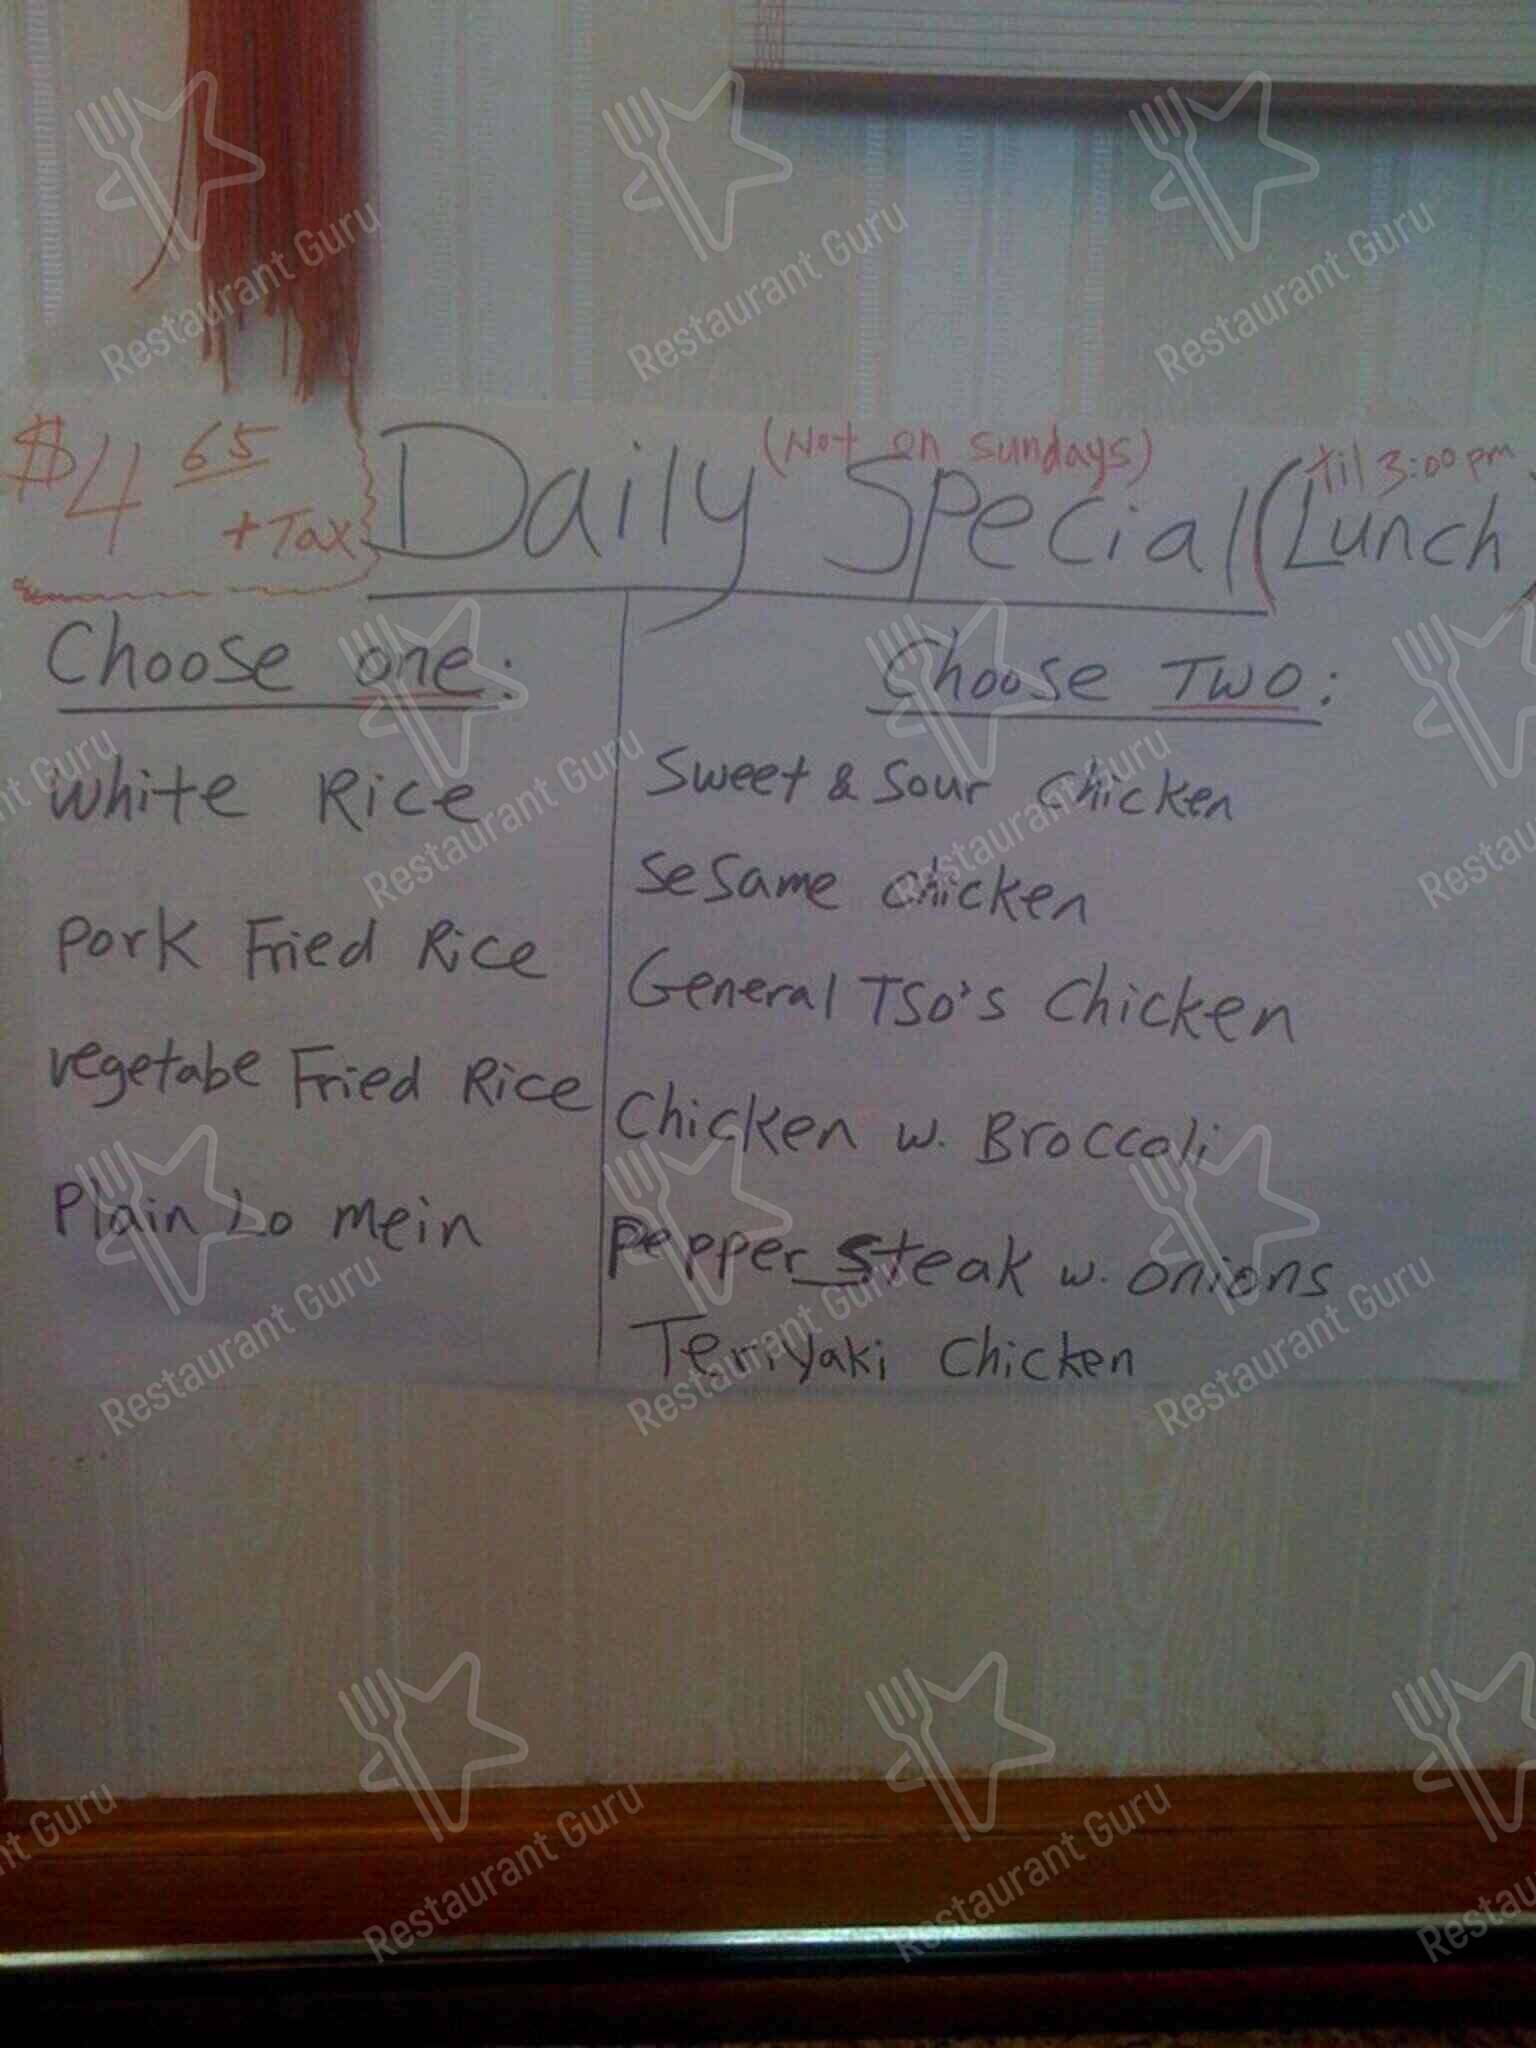 $4 65 + Tax
(Not on sundays)
Daily Special (Lunch)
til 3:00 pm
Choose one:
White Rice
Pork Fried Rice
vegetabe Fried Rice
Plain Lo mein
Choose Two:
Sweet & Sour Chicken
Sesame Chicken
General TSO's Chicken
Chicken w. Broccoli
Pepper Steak w. onions
Teriyaki Chicken
Restaurant Guru